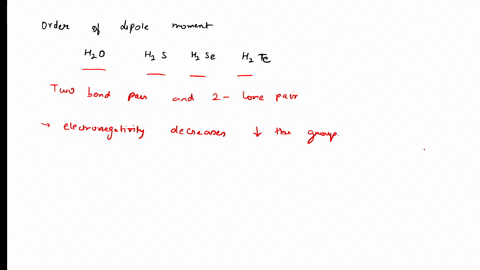 Order of dipole moment
H2O H2S H2Se H2Te
Two bond pair and 2- lone pair
→ electronegativity decreases ↓ the group.